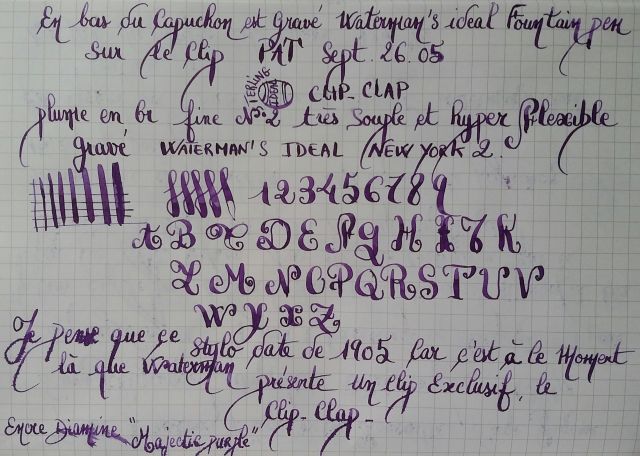 En bas du Capuchon est gravé Waterman's ideal Fountain pen
Sur le Clip PAT Sept. 26. 05
STERLING
CLIP-CLAP
plume en or fine N°2 très Souple et hyper Flexible
gravé WATERMAN'S IDEAL NEW YORK 2.
123456789
A B C D E F G H I J K
L M N O P Q R S T U V
W Y X Z
Je pense que ce Stylo date de 1905 Car c'est à le Moment
là que Waterman présente un Clip Exclusif, le
Clip-Clap-
Encre Diamine "Majectic purple"